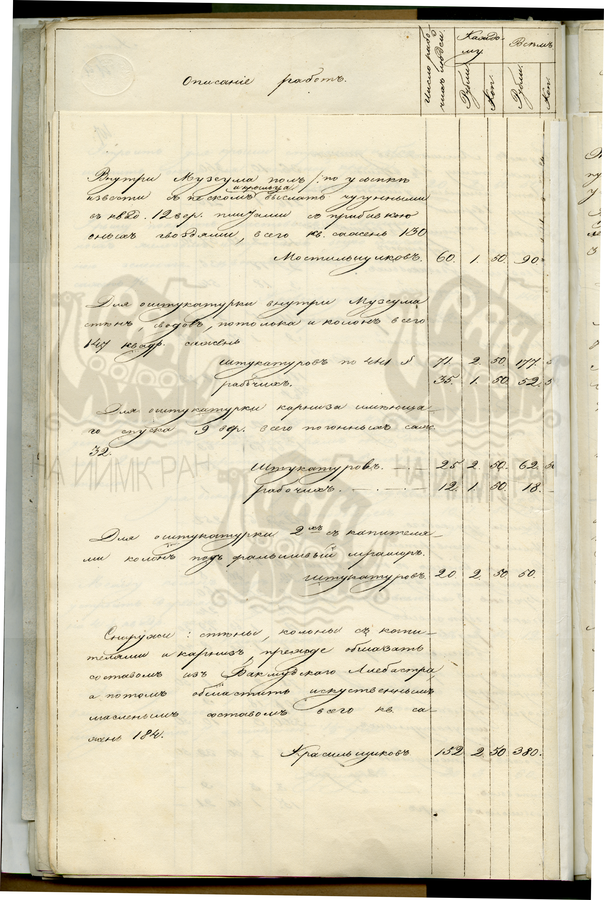 Описаніе работъ.
Число рабо-
чихъ людей.
Каждо-
му.
Всѣмъ
Рубли.
Коп.
Рубли.
Коп.
Внутри Музеума полъ по
и крыльца
извести съ пескомъ выслать чугунными
въ квад. 12 вер. плитами съ прибивкою
оныхъ гвоздями, всего кв. сажень 130
Мостильщиковъ. 60. 1. 50. 90.
Для оштукатурки внутри Музеума
стѣнъ, сводовъ, потолока и колонъ всего
147 квадр. сажень
штукатуровъ по 71. 2. 50. 177. 5
рабочихъ. 35. 1. 50. 52. 5
Для оштукатурки карниза имѣюща-
го спуска 9 вер. всего погонныхъ саж.
32.
Штукатуровъ. 25. 2. 50. 62. 50
рабочихъ. 12. 1. 50. 18.
Для оштукатурки 2хъ съ капителя-
ми колонъ подъ фальшивый мраморъ.
штукатуровъ 20. 2. 50. 50.
Снаружи: стѣны, колоны съ капи-
телями и карнизъ, прежде обмазать
составомъ изъ Бахмутскаго Алебастра,
а потомъ обмастить искуственнымъ
масленымъ составомъ всего кв. са-
жень 184.
Красильщиковъ 152. 2. 50. 380.
НА ИИМК РАН
НА ИИМК